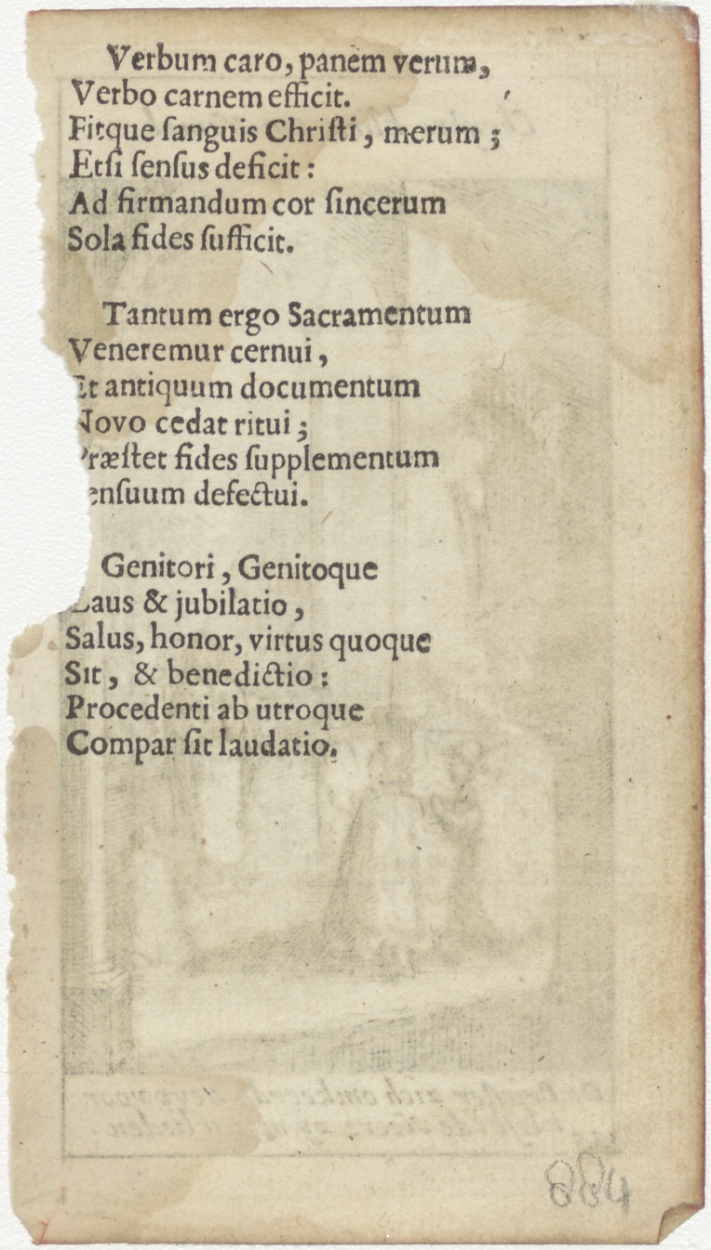 Verbum caro, panem verum,
Verbo carnem efficit.
Fitque ſanguis Chriſti, merum;
Etſi ſenſus deficit:
Ad firmandum cor ſincerum
Sola fides ſufficit.
Tantum ergo Sacramentum
Veneremur cernui,
Et antiquum documentum
Novo cedat ritui;
Præſtet fides ſupplementum
enſuum defectui.
Genitori, Genitoque
Laus & jubilatio,
Salus, honor, virtus quoque
Sit, & benedictio:
Procedenti ab utroque
Compar ſit laudatio.
884